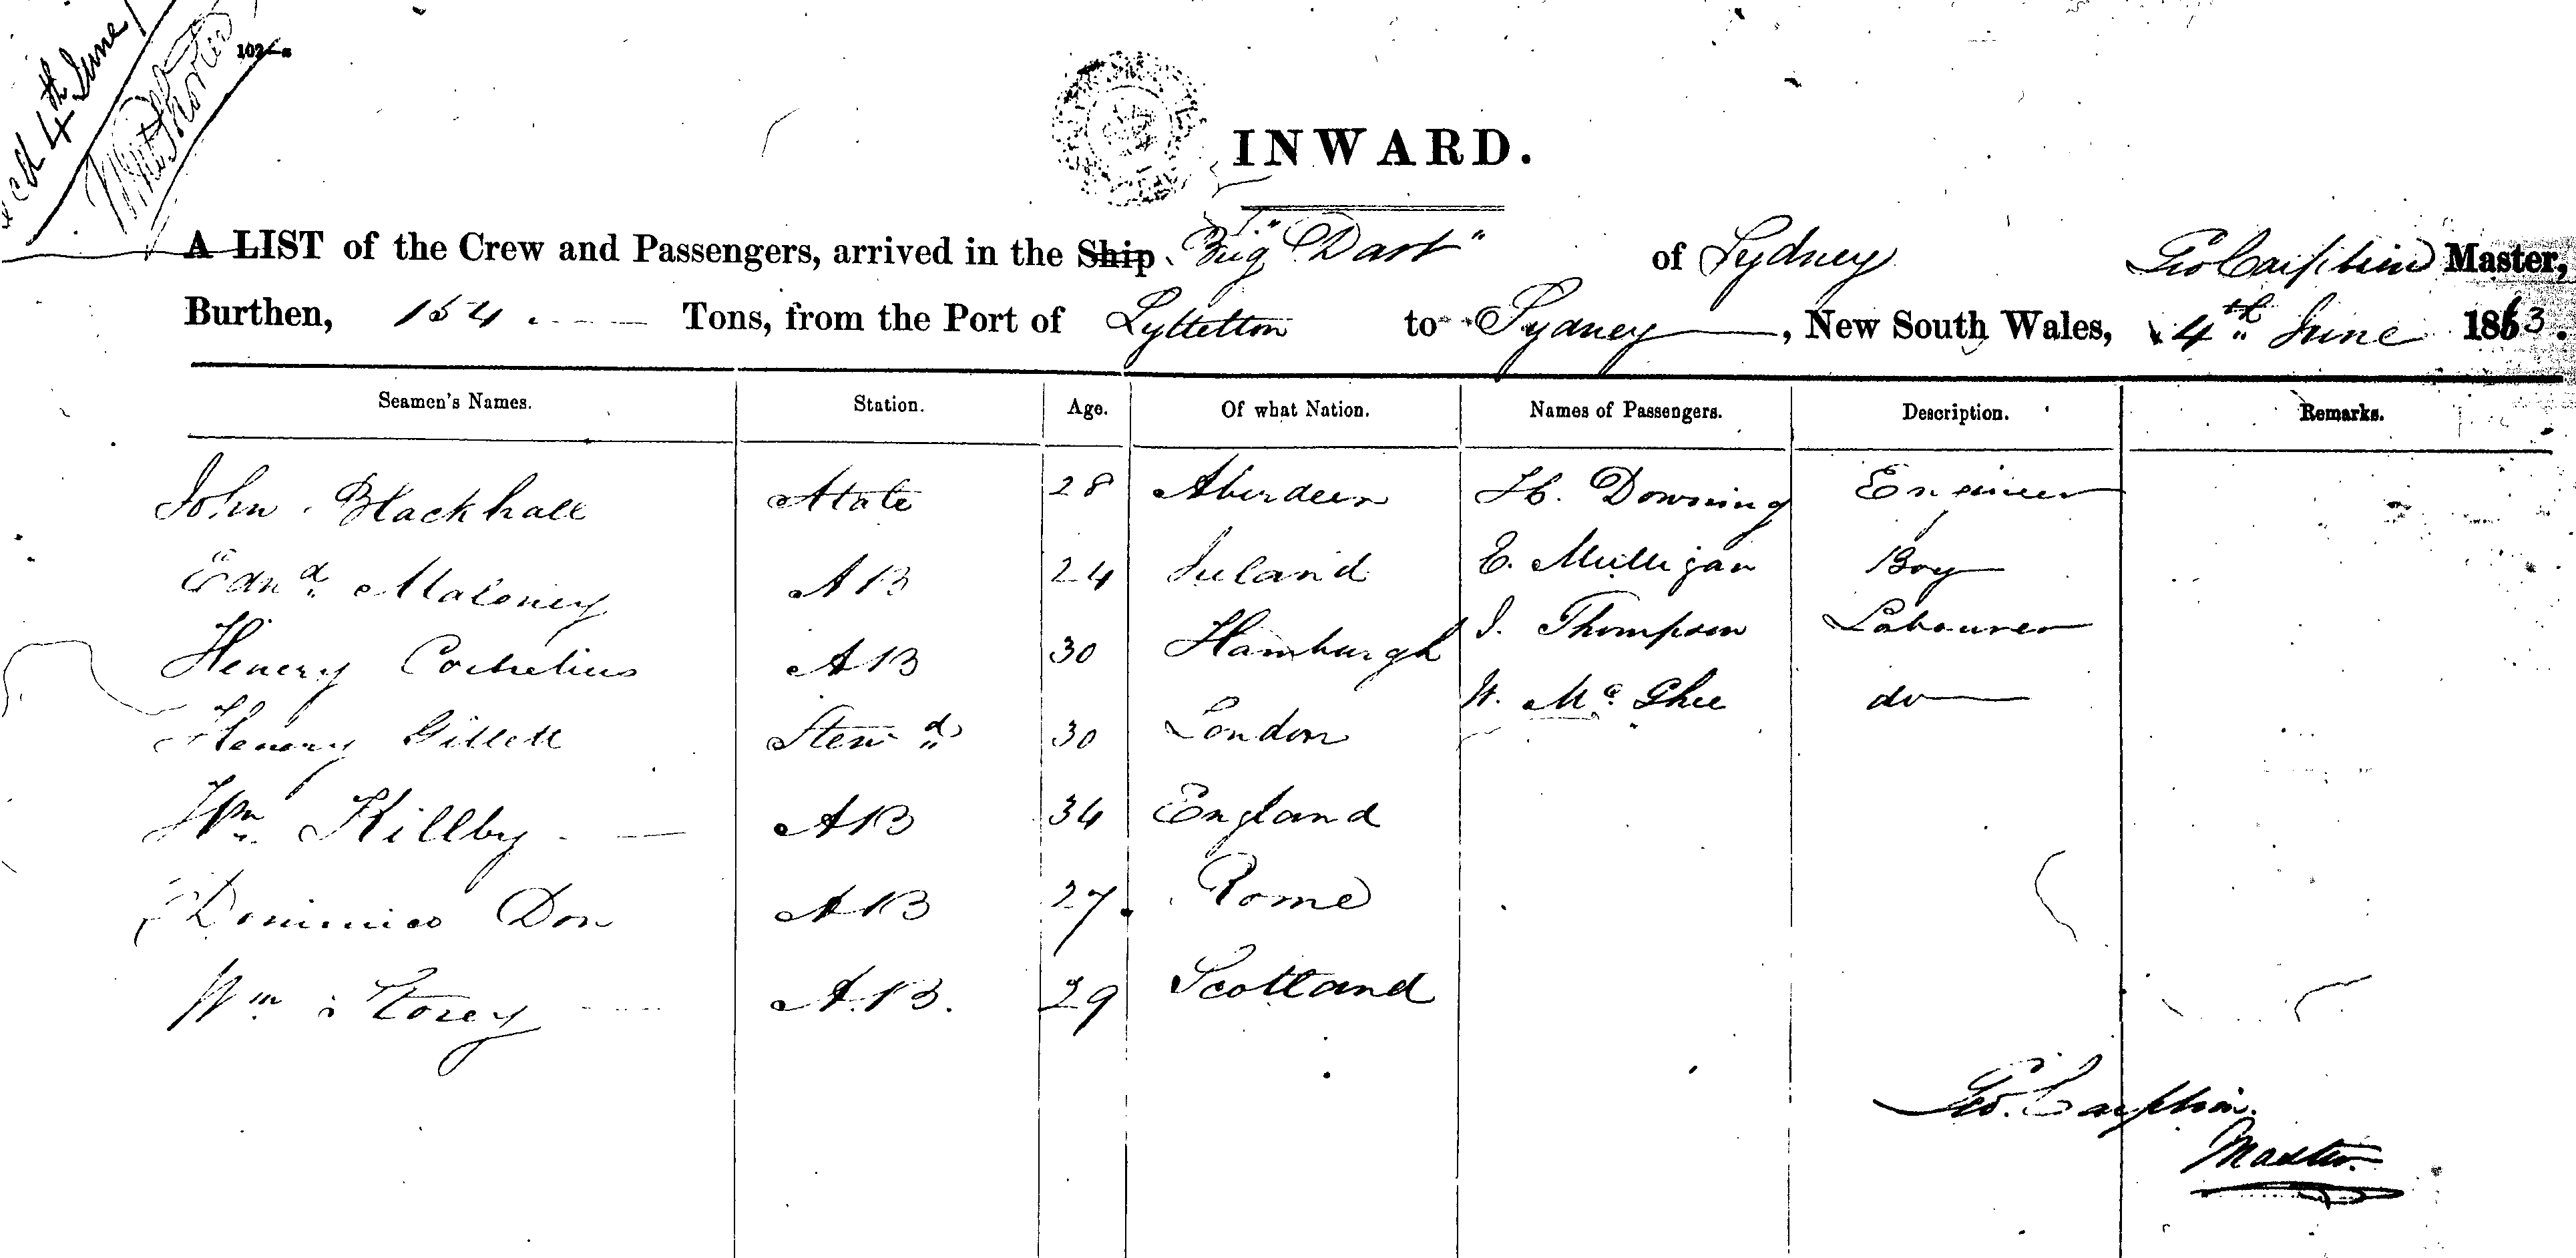 4th June
INWARD.
A LIST of the Crew and Passengers, arrived in the Ship Brig "Dart" of Sydney Geo Master,
Burthen, 154 Tons, from the Port of Lyttelton to Sydney, New South Wales, 4th June 1863.
Seamen's Names. Station. Age. Of what Nation. Names of Passengers. Description. Remarks.
John Blackhall Mate 28 Aberdeen H. Downing Engineer
Edwd Maloney AB 24 Ireland E. Mulligan Boy
Henery Cornelius AB 30 Hamburgh J. Thompson Labourer
Henery Gillett Stewd 30 London W. Mc Ghee do
Wm Killby AB 34 England
Dominico Don AB 27 Rome
Wm Storey A.B. 29 Scotland
Geo.
Master